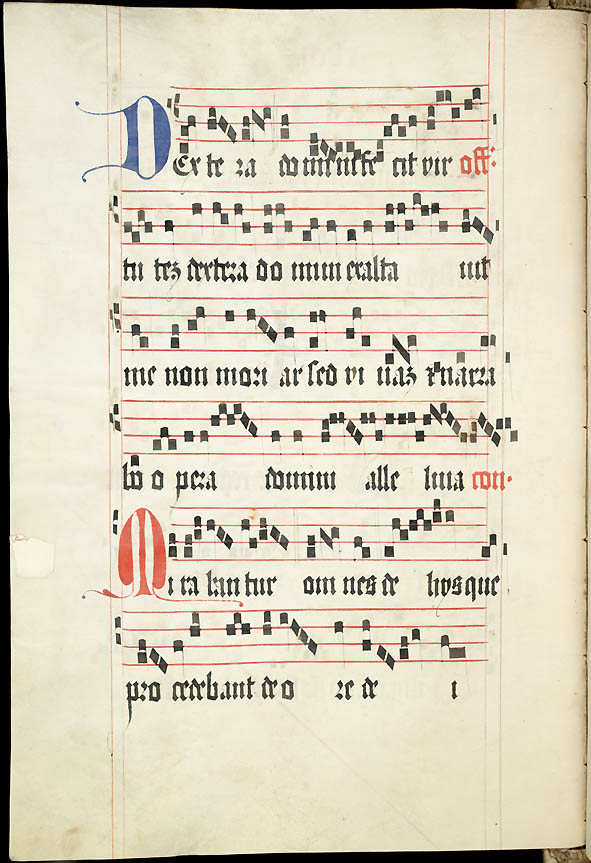 Dex te ra do mini fe cit vir off:
tu teʒ dextera do mini exalta uit
me non mori ar sed vi uaʒ & narra
bo o pera domini alle luia con·
Mi ra bantur om nes de hijs que
pro cedebant de o re de i